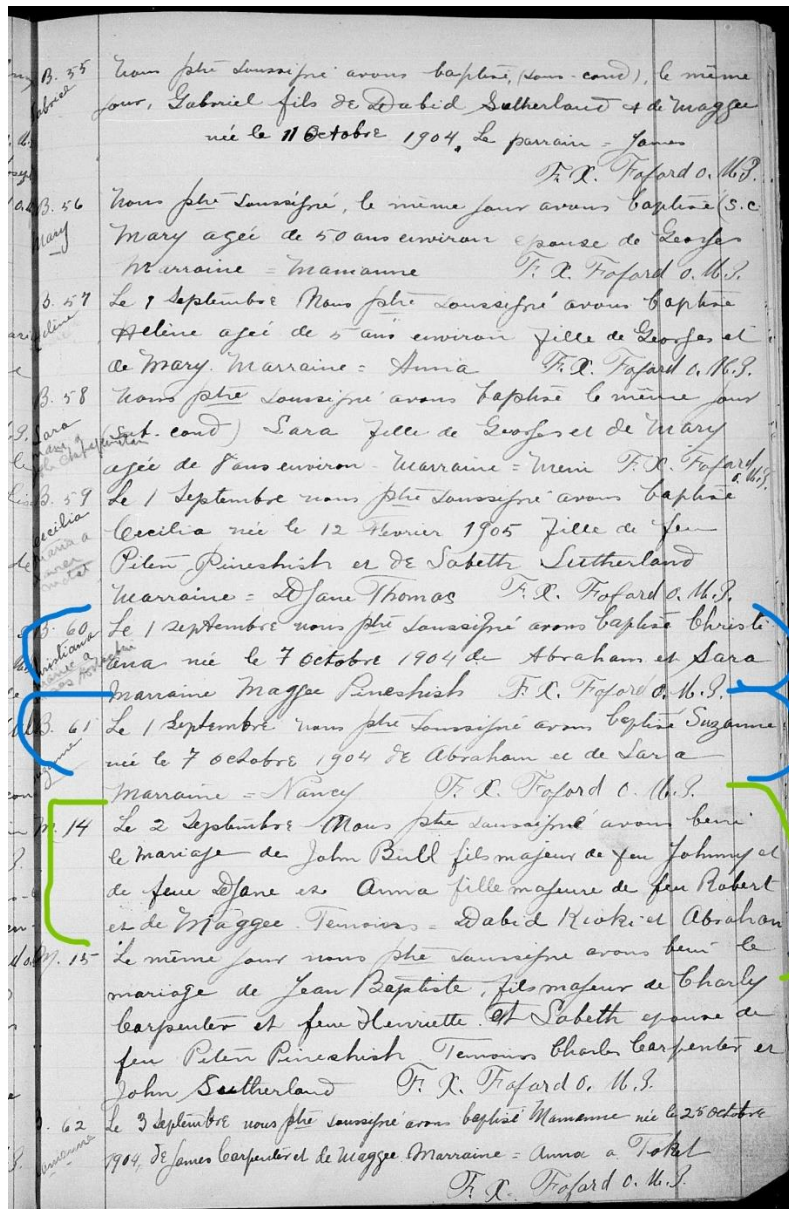 B. 55 Nous ptre soussigné avons baptisé, (sous-cond), le même
Gabriel jour, Gabriel fils de Dabid Sutherland et de Maggee
née le 11 Octobre 1904. Le parrain = James
F. X. Fafard o. M. I.
B. 56 Nous ptre soussigné, le même jour avons baptisé (s. c.
Mary Mary ageé de 50 ans environ epouse de Georges
Marraine = Mamanne F. X. Fafard o. M. I.
B. 57 Le 1 Septembre Nous ptre soussigné avons baptisé
Hélène ageé de 5 ans environ fille de Georges et
de Mary. Marraine = Anna F. X. Fafard o. M. I.
B. 58 Nous ptre soussigné avons baptisé le même jour
Sara (sub. cond) Sara fille de Georges et de Mary
ageé de 8 ans environ - Marraine = Meni F. X. Fafard
o. M. I.
B. 59 Le 1 Septembre nous ptre soussigné avons baptisé
Cecilia Cecilia née le 12 Fevrier 1905 fille de feu
Piten Pineshish et de Sabeth Sutherland
Marraine = DJane Thomas F. X. Fafard o. M. I.
B. 60 Le 1 septembre nous ptre soussigné avons baptisé Christi
Christiana ana née le 7 octobre 1904 de Abraham et Sara
Marraine Maggee Pineshish F. X. Fafard o. M. I.
B. 61 Le 1 Septembre nous ptre soussigné avons baptisé Suzanne
née le 7 octobre 1904 de Abraham et de Sara
Marraine = Nancy F. X. Fafard o. M. I.
M. 14 Le 2 Septembre Nous ptre soussigné avons beni
le mariage de John Bull fils majeur de feu Johnny et
de feue DJane et Anna fille majeure de feu Robert
et de Maggee. Temoins = Dabid Kioki et Abraham
M. 15 Le même jour nous ptre soussigné avons beni le
mariage de Jean Baptiste, fils majeur de Charly
Carpenter et feue Henriette. Et Sabeth epouse de
feu Piten Pineshish Temoins Charles Carpenter et
John Sutherland F. X. Fafard o. M. I.
B. 62 Le 3 Septembre nous ptre soussigné avons baptisé Mamanne née le 25 octobre
Mamanne 1904, de James Carpenter et de Maggee. Marraine = Anna a Toket
F. X. Fafard o. M. I.